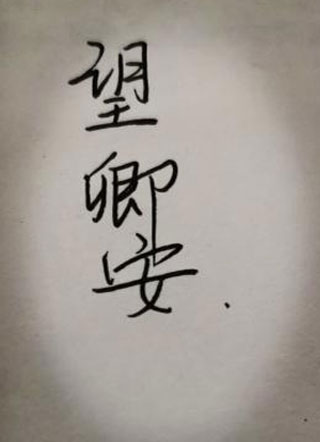 望卿安.